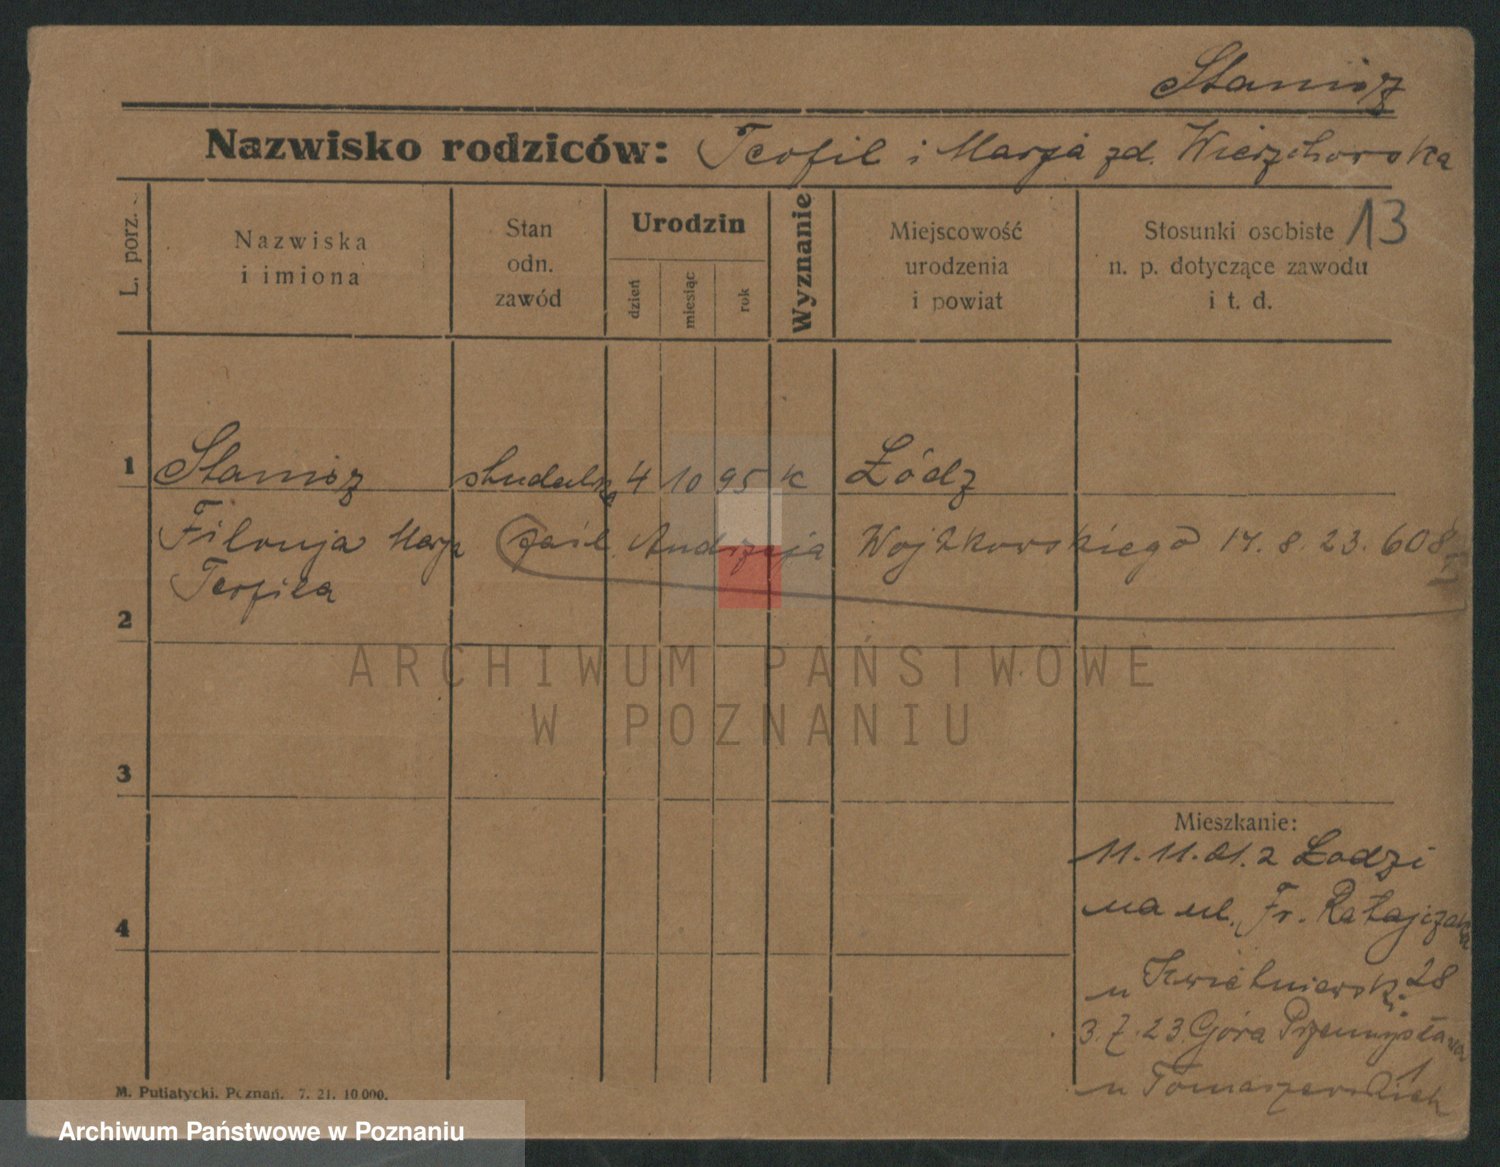 Stanisz
Nazwisko rodziców: Teofil i Marja zd. Wierzchowska
L. porz.
Nazwiska
i imiona
Stan
odn.
zawód
Urodzin
dzień
miesiąc
rok
Wyznanie
Miejscowość
urodzenia
i powiat
Stosunki osobiste 13
n. p. dotyczące zawodu
i t. d.
1 Stanisz 4 10 95 k Łódz
Filonja Marja zaśl. Andrzeja Wojtkowskiego 17. 8. 23. 608
Teofila
2
3
4
Mieszkanie:
11. 11. 21. z Łodzi
na ul. Fr. Ratajczaka
u Kwiatniewski 28
3. 7. 23. Góra Przemysława
u Tomaszewskich 1
M. Putiatycki. Poznań. 7. 21. 10 000.
ARCHIWUM PAŃSTWOWE
W POZNANIU
Archiwum Państwowe w Poznaniu